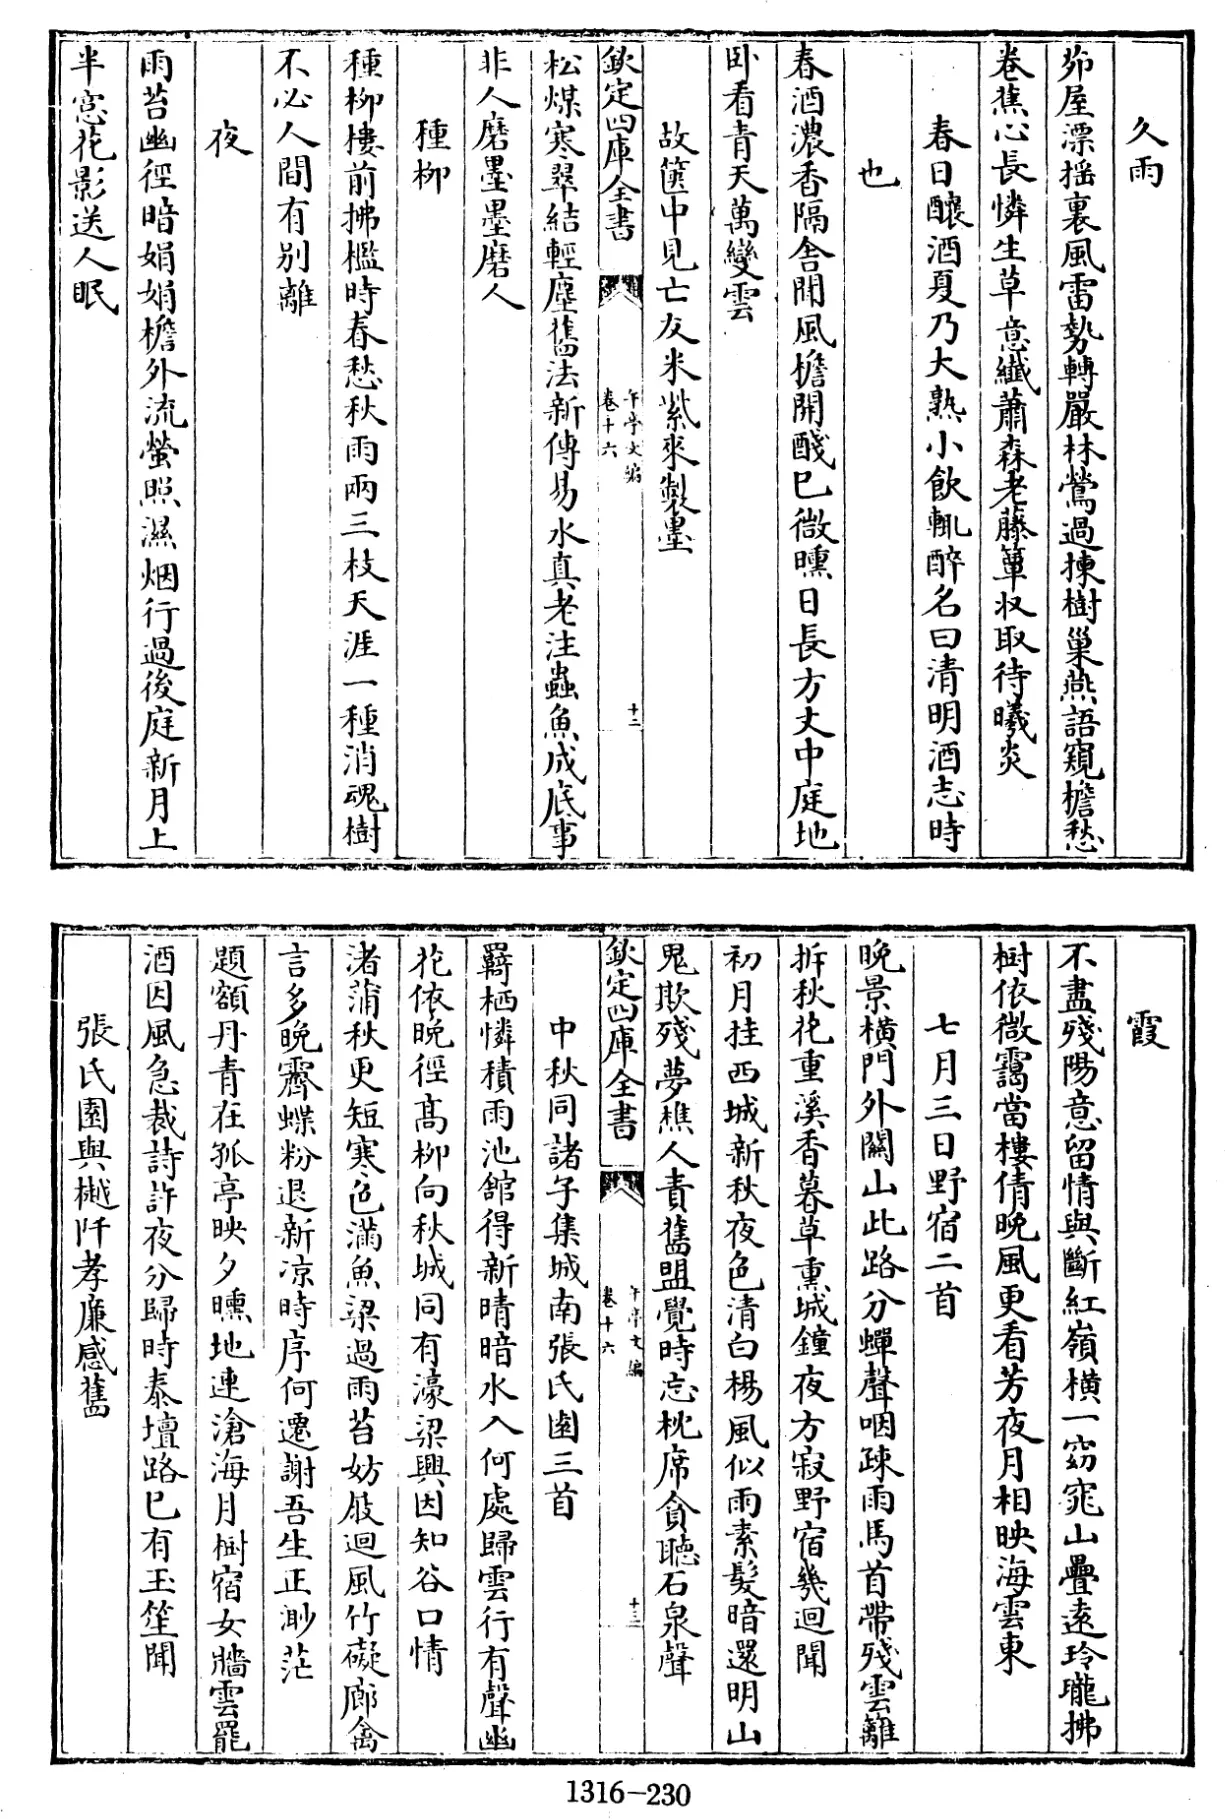 久雨
茆屋漂揺裏風雷勢轉嚴林鶯過揀樹巢燕語窺檐愁
卷蕉心長憐生草意纎蕭森老藤簟収取待曦炎
春日釀酒夏乃大熟小飲輙醉名曰清明酒志時
也
春酒濃香隔舍聞風檐開醆已微曛日長方丈中庭地
卧看青天萬變雲
故篋中見亡友米紫來製墨
欽定四庫全書
午亭文編
卷十六
十二
松煤寒翠結輕塵舊法新傳易水真老注蟲魚成底事
非人磨墨墨磨人
種柳
種柳樓前拂檻時春愁秋雨兩三枝天涯一種消魂樹
不必人間有别離
夜
雨苔幽徑暗娟娟檐外流螢照濕烟行過後庭新月上
半窓花影送人眠
霞
不盡殘陽意留情與斷紅嶺横一窈窕山疊逺玲瓏拂
樹依微靄當樓倩晚風更看芳夜月相映海雲東
七月三日野宿二首
晚景横門外闗山此路分蟬聲咽疎雨馬首帶殘雲離
拆秋花重溪香暮草熏城鐘夜方寂野宿幾迴聞
初月挂西城新秋夜色清白楊風似雨素髮暗還明山
鬼欺殘夢樵人責舊盟覺時忘枕席貪聴石泉聲
欽定四庫全書
午亭文編
卷十六
十三
中秋同諸子集城南張氏園三首
羇栖憐積雨池館得新晴暗水入何處歸雲行有聲幽
花依晚徑髙柳向秋城同有濠梁興因知谷口情
渚蒲秋更短寒色滿魚梁過雨苔妨屐迴風竹礙廊禽
言多晚霽蝶粉退新凉時序何遷謝吾生正渺茫
題額丹青在孤亭映夕曛地連滄海月樹宿女牆雲罷
酒因風急裁詩許夜分歸時泰壇路已有玉笙聞
張氏園與樾阡孝廉感舊
1316-230